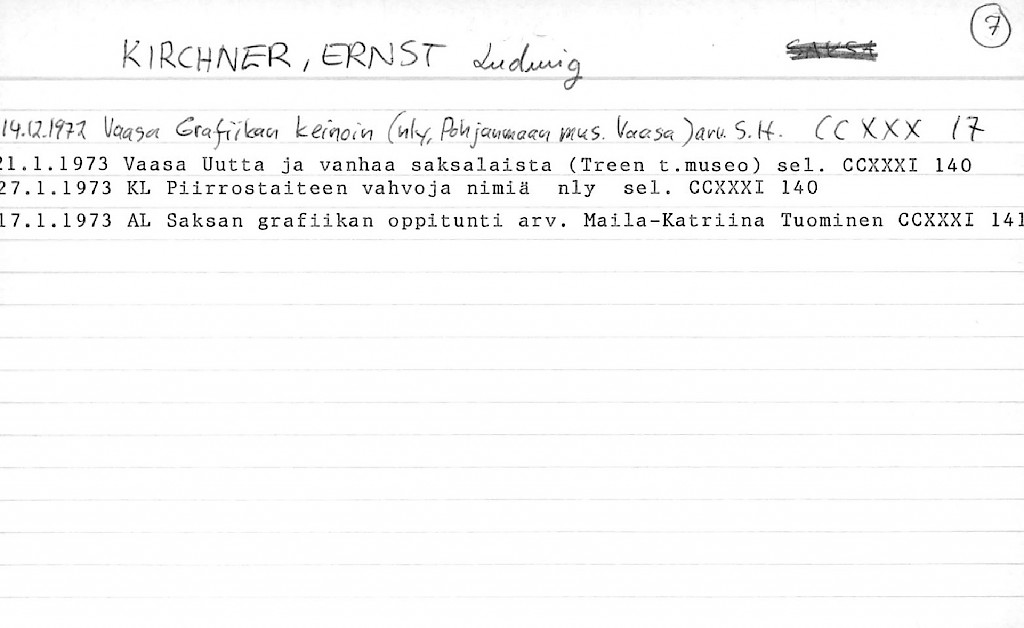 7
KIRCHNER, ERNST Ludwig SAKSA
14.12.1972 Vaasa Grafiikan keinoin (nly, Pohjanmaan mus. Vaasa) arv. S.H. CCXXX 17
21.1.1973 Vaasa Uutta ja vanhaa saksalaista (Treen t.museo) sel. CCXXXI 140
27.1.1973 KL Piirrostaiteen vahvoja nimiä nly sel. CCXXXI 140
17.1.1973 AL Saksan grafiikan oppitunti arv. Maila-Katriina Tuominen CCXXXI 141